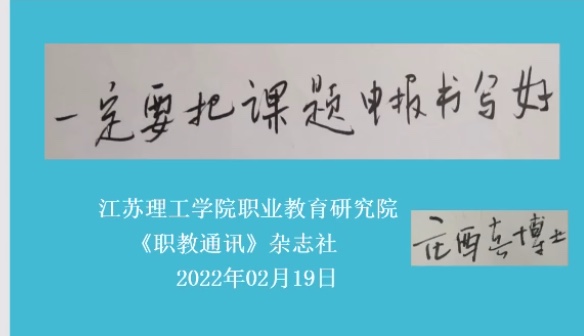 一定要把课题申报书写好
江苏理工学院职业教育研究院
《职教通讯》杂志社
2022年02月19日
庄西真博士